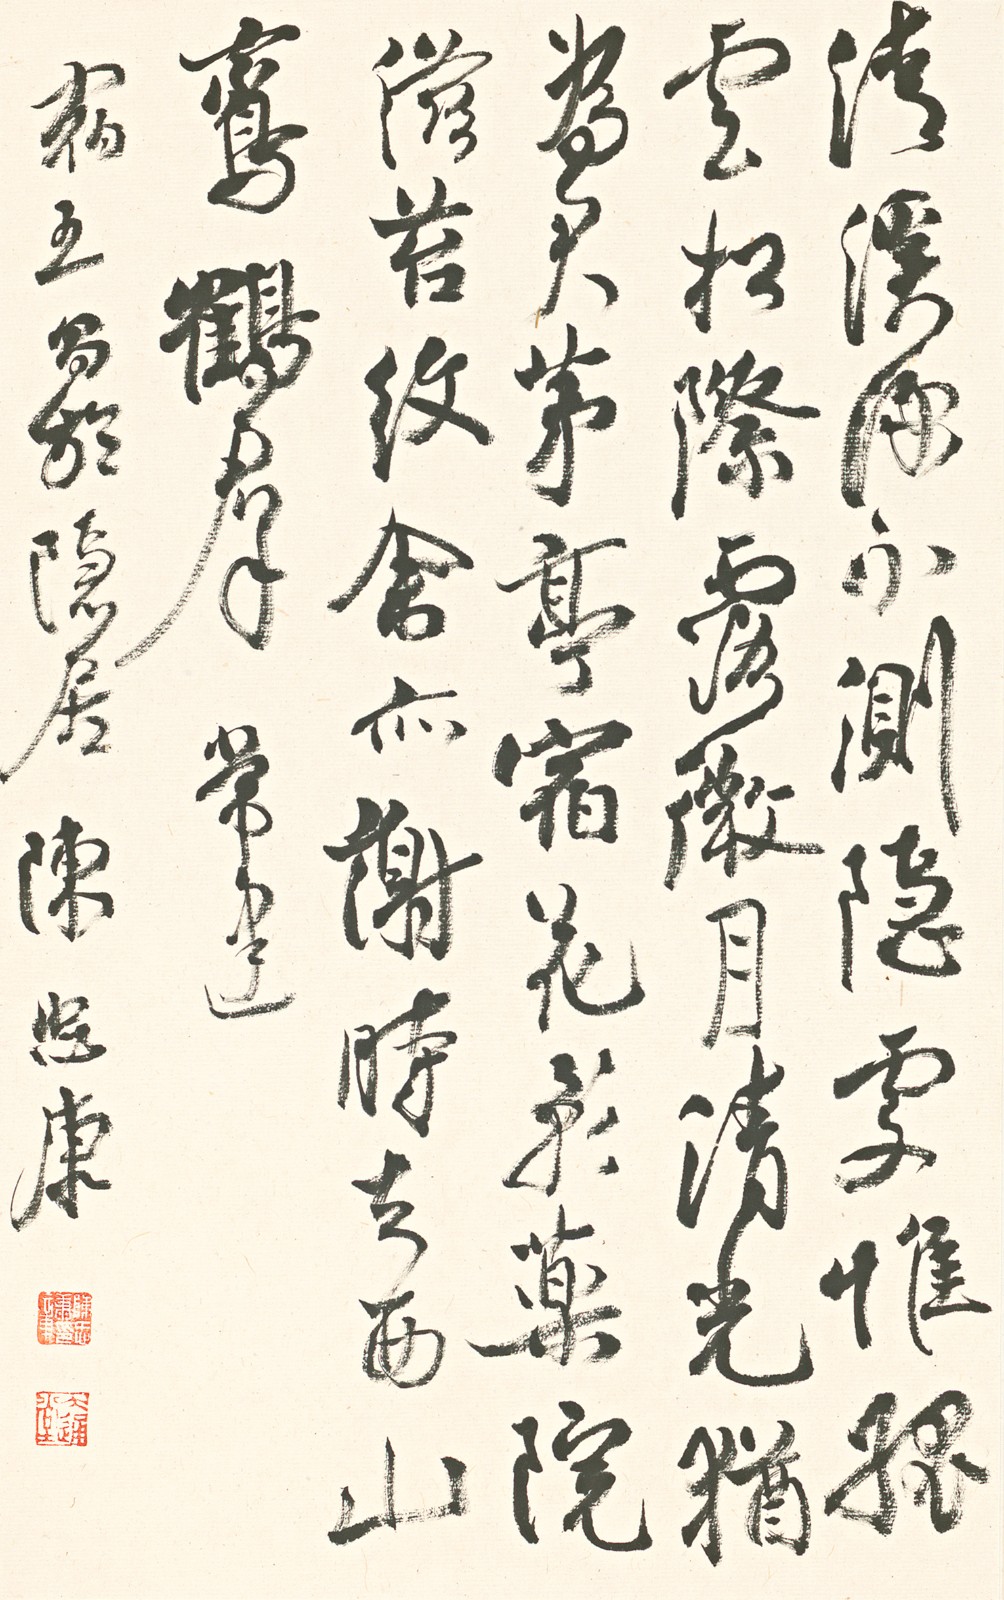 清溪深不測隱處惟孤
雲松際露微月清光猶
為君茅亭宿花影藥院
滋苔紋舍亦謝時去西山
鸞鶴羣 常建
宿王昌齡隱居 陳忠康